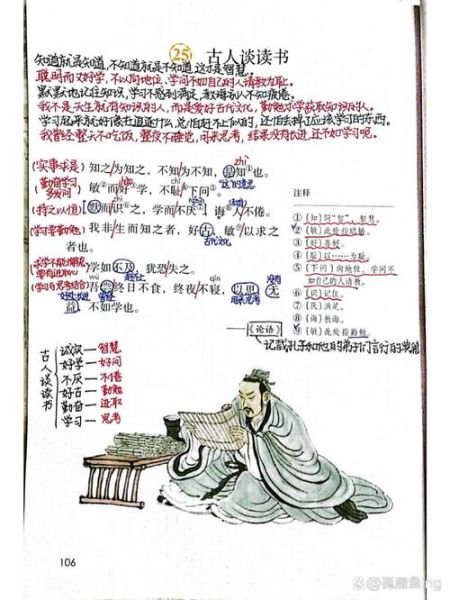 25 古人谈读书
知道就是知道,不知道就是不知道,这才是智慧。
聪明而又好学,不以向地位、学问不如自己的人请教为耻。
默默地记住知识,学习不感到满足,教诲别人不知疲倦。
我不是天生就有知识的人,而是爱好古代文化,勤勉求学获取知识的人。
我曾经整天不吃饭,整夜不睡觉,用来思考,结果没有长进,还不如学习呢。
(实事求是) 知之为知之,不知为不知,是知①也。
zhī
(勤奋学习 多发问) 敏②而好③学,不耻④下问⑤。
chǐ
(持之以恒) 默而识⑥之,学而不厌⑦,诲⑧人不倦。
zhì
(学习要勤勉) 我非生而知之者,好古,敏⑨以求之
古代文化
者也。
学如不及,犹恐失之。
(学习与思考结合) 吾尝终日不食,终夜不寝,以思,无
qǐn
用来思考
益,不如学也。
——《论语》
注释
①〔知〕同“智”,智慧。
②〔敏〕此处指聪敏。
③〔好〕喜好。
④〔耻〕以……为耻。
⑤〔下问〕向地位、学问不
如自己的人请教。
⑥〔识〕记住。
⑦〔厌〕满足。
⑧〔诲〕教诲。
⑨〔敏〕此处指勤勉。
古人谈读书
诚实—智慧
好学—好问
不厌—不倦
好古—勤勉
勤奋—进取
学习—思考
106